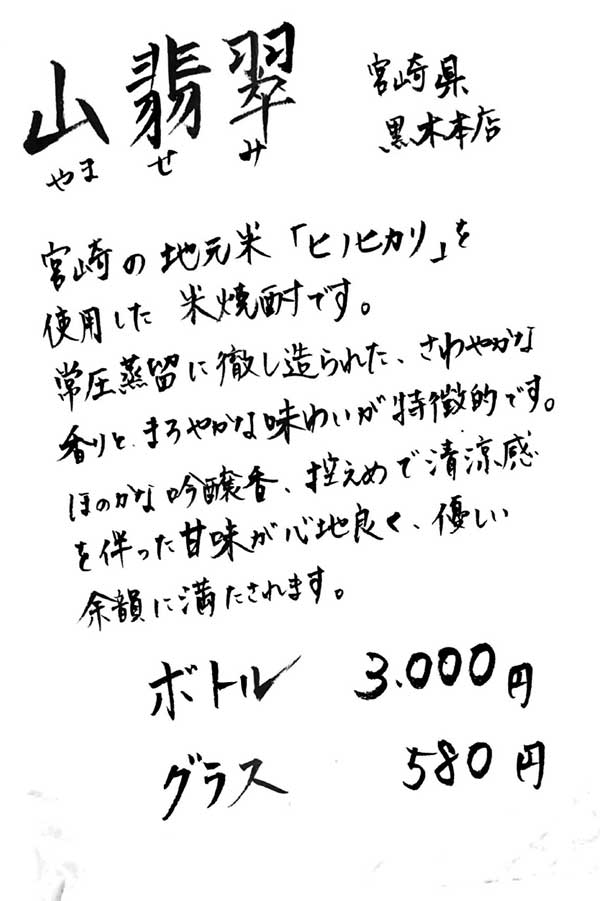 山翡翠
やませみ
宮崎県
黒木本店
宮崎の地元米「ヒノヒカリ」を
使用した 米焼酎です。
常圧蒸留に徹し造られた、さわやかな
香りと、まろやかな味わいが特徴的です。
ほのかな吟醸香、控えめで清涼感
を伴った甘味が心地良く、優しい
余韻に満たされます。
ボトル 3.000円
グラス 580円